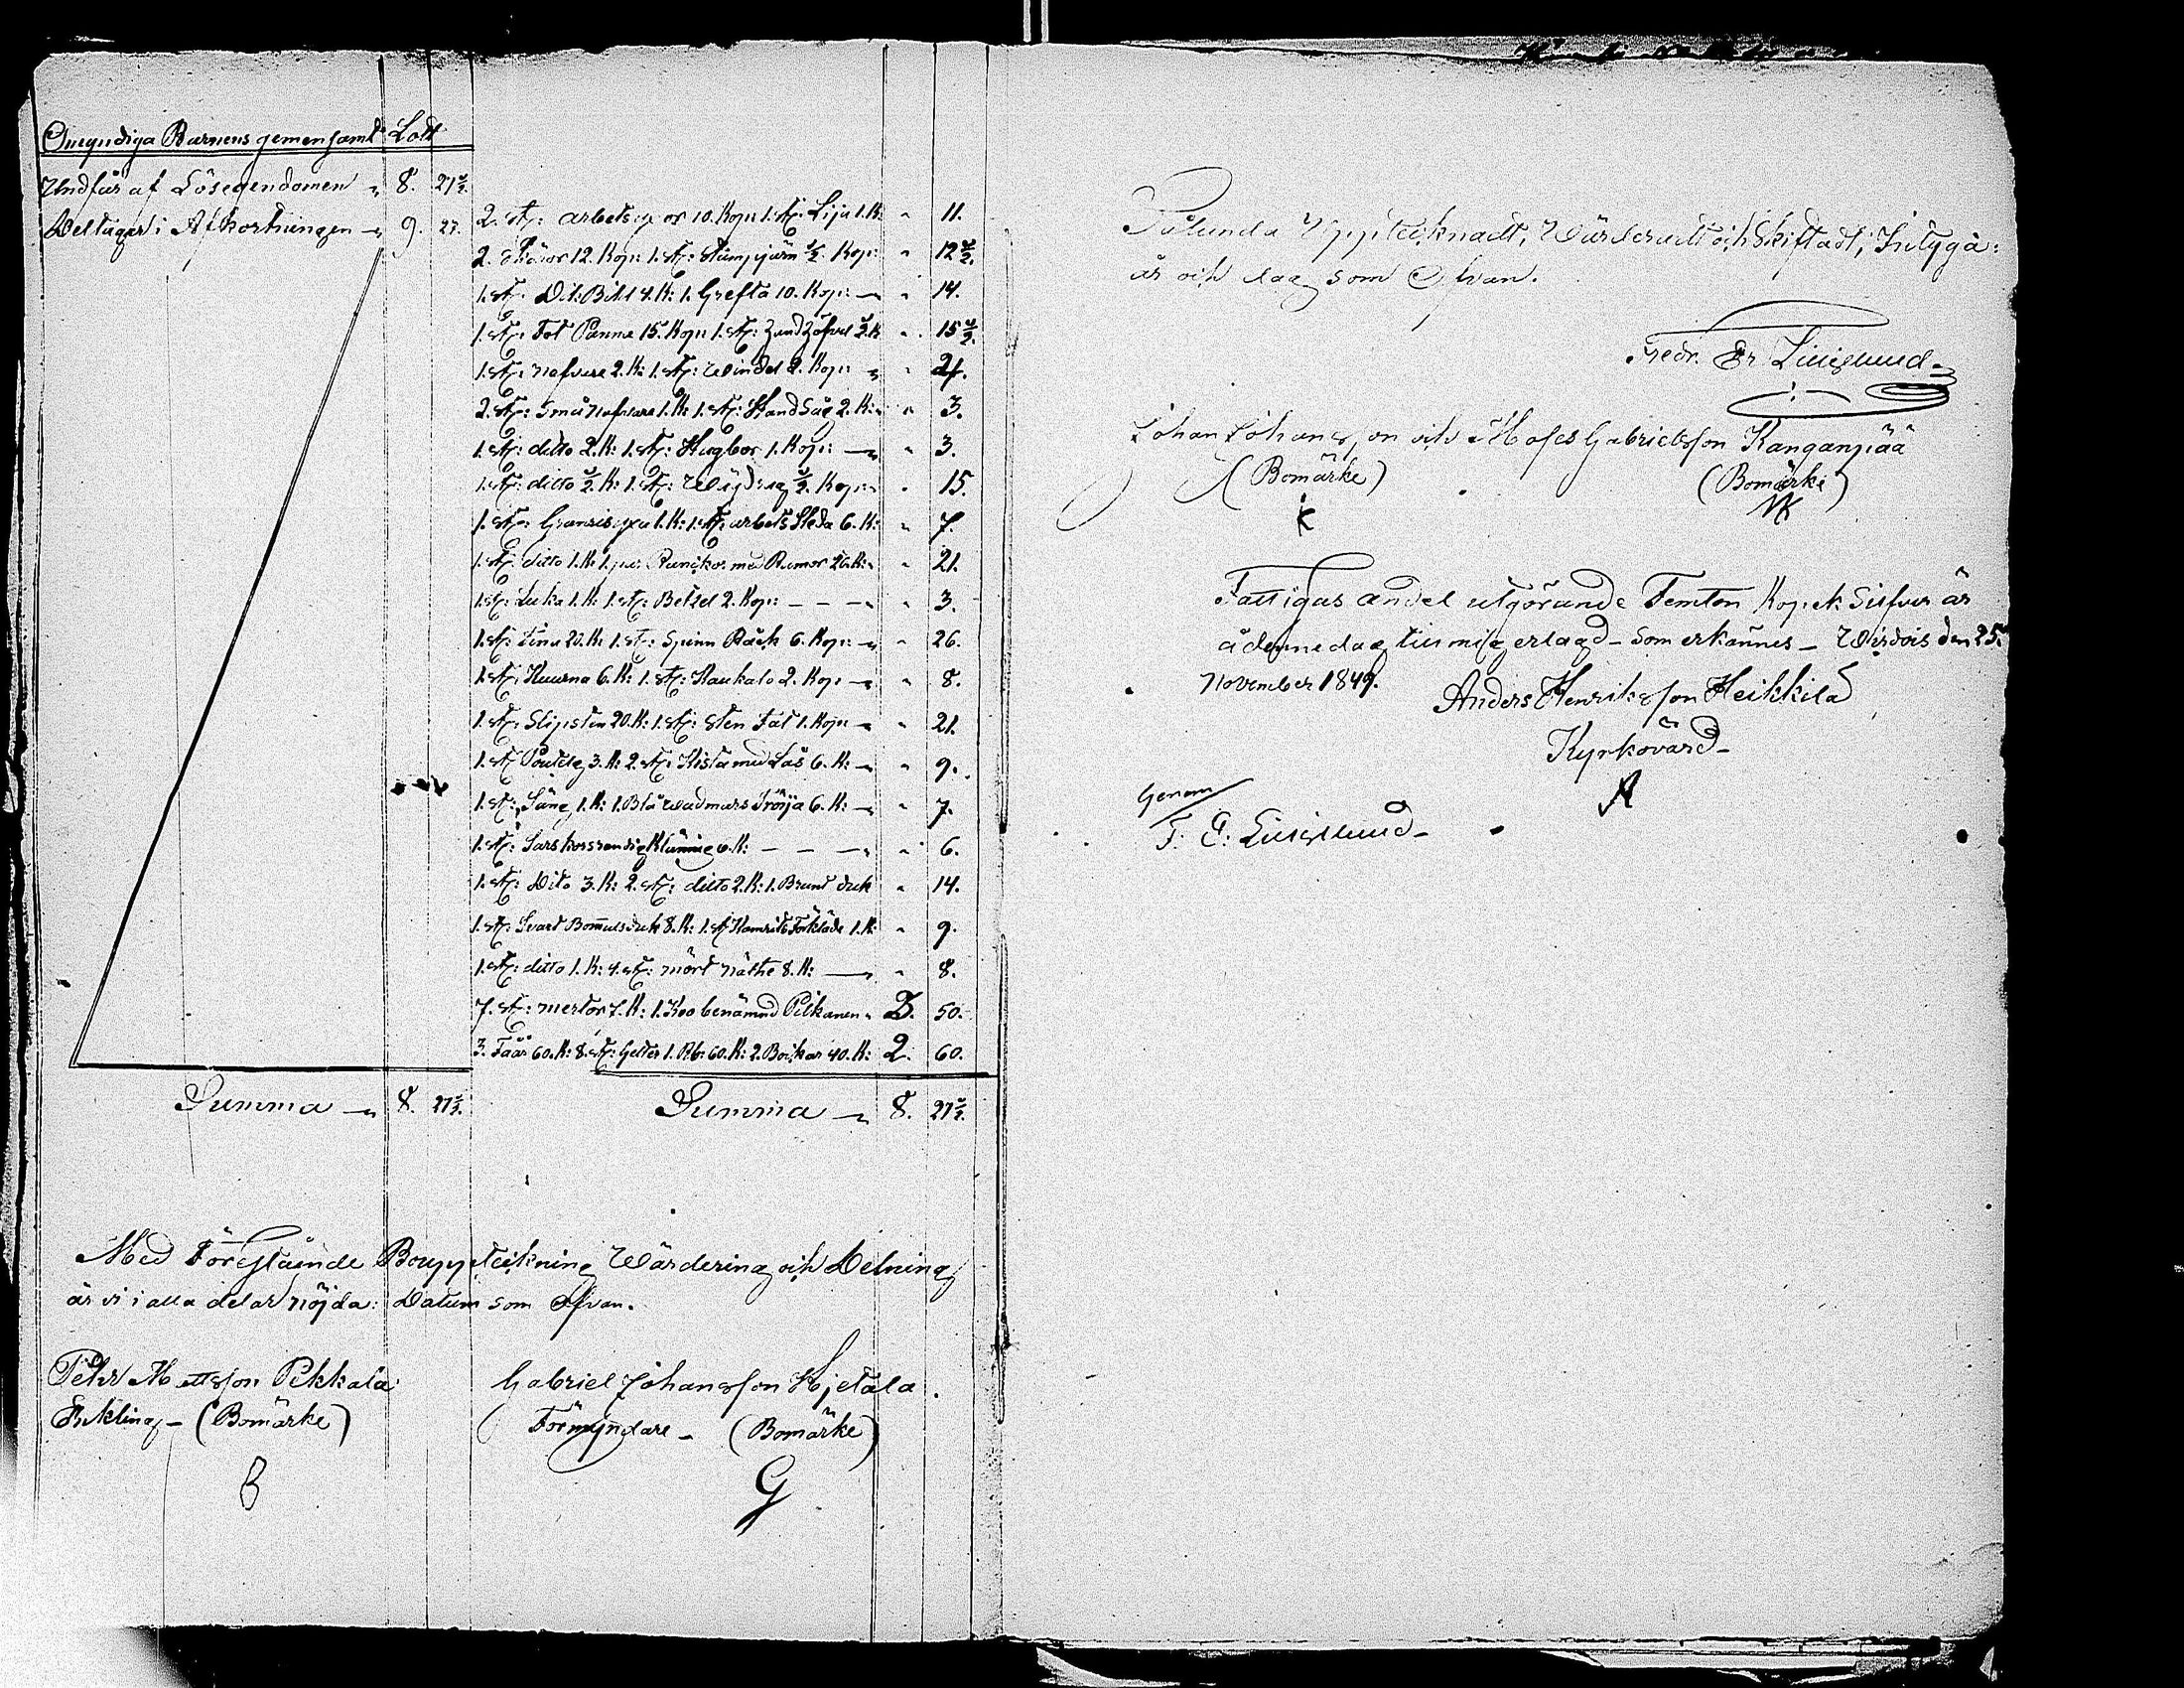 Omyndiga Barnens gemensamt Lott
Undfår af Lösegendomen „ 8. 27½.
Deltager i Afkortningen „ 9. 27.
2. st: arbets yxor 10. Kop: 1. st: Lija 1. K: „ 11.
2. Skäror 12. Kop: 1. st: Stämpjärn ½. Kop: „ 12½.
1. st: Dit: Bill 4. K: 1. Grefta 10. Kop: „ 14.
1. st: Fot Panna 15. Kop: 1. st: ½. K „ 15½.
1. st: nafvare 2. K: 1. st: Windel 2. Kop: „ 4.
2. st: Små nafvare 1. K: 1. st: Hand Såg 2. K: „ 3.
1. st: ditto 2. K: 1. st: Hugbor 1. Kop: „ 3.
1. st: ditto ½. K: 1. st: ½. Kop: „ 15.
1. st: 1. K: 1. st: arbets Släda 6. K: „ 7.
1. st: ditto 1. K: 1. par med Remor 20. K: „ 21.
1. st: Luka 1. K: 1. st: Betzel 2. Kop: „ 3.
1. st: Tina 20. K: 1. st: Spinn Råck 6. Kop: „ 26.
1. st: Kuurna 6. K: 1. st: Kaukalo 2. Kop: „ 8.
1. st: Slipsten 20. K: 1. st: Sten Fat 1. Kop: „ 21.
1. st: 3. K: 2. st: Kista med Lås 6. K: „ 9.
1. st: Säng 1. K: 1. Blå Wadmars Tröija 6. K: „ 7.
1. st: Klänning 6. K: „ 6.
1. st: Dito 3. K: 2. st: ditto 2. K: 1. Brund duk „ 14.
1. st: Svart Bomulsduk 8. K: 1. st Förkläde 1. K: „ 9.
1. st: ditto 1. K: 4. st: mört näthe 8. K: „ 8.
7. st: mertor 7. K: 1. Koo benämnd Pilkanen „ 3. 50.
3. Fåår 60. K: 8. st: Getter 1. Rb: 60. K: 2. Bockar 40. K: 2. 60.
Summa „ 8. 27½.
Summa „ 8. 27½.
Med Föreståinde Bouppteckning Wärdering och Delning
är vi i alla delar nöjda: Datum som ofvan.
Petter Mattsson Pekkala
Enkling – (Bomärke)
Gabriel Johansson Hjetala.
Förmyndare – (Bomärke)
G
Pålunda Uppteiknadt, Wärderadt och Skiftadt, Intyga:
år och dag som Ofvan.
Fredr. Er. Liliglund
Johan Johansson och Mofes Gabrielsson Kanganpää
(Bomärke)
(Bomärke)
K
MK
Fattigas andel utgörande Femton Kopek Silfver är
å denne dag till mig erlagd – som erkännes – Wirdois den 25.
November 1849.
Anders Henriksson Heikkilä
Kyrkovärd –
A
Genom
F. E. Liliglund –